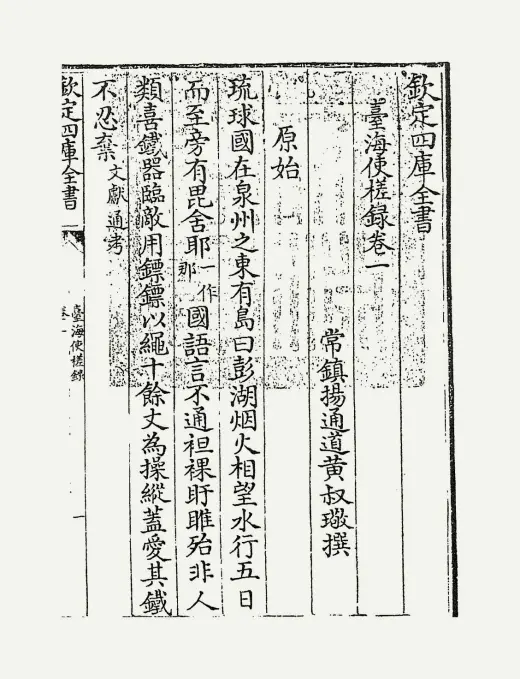 欽定四庫全書
臺海使槎錄卷一
常鎮揚通道黄叔璥撰
原始
琉球國在泉州之東有島曰彭湖烟火相望水行五日
而至旁有毘舍耶一作那國語言不通袒裸盱睢殆非人
類喜鐵器臨敵用鏢鏢以繩十餘丈為操縱蓋愛其鐵
不忍棄文獻通考
欽定四庫全書
臺海使槎錄
卷一
一